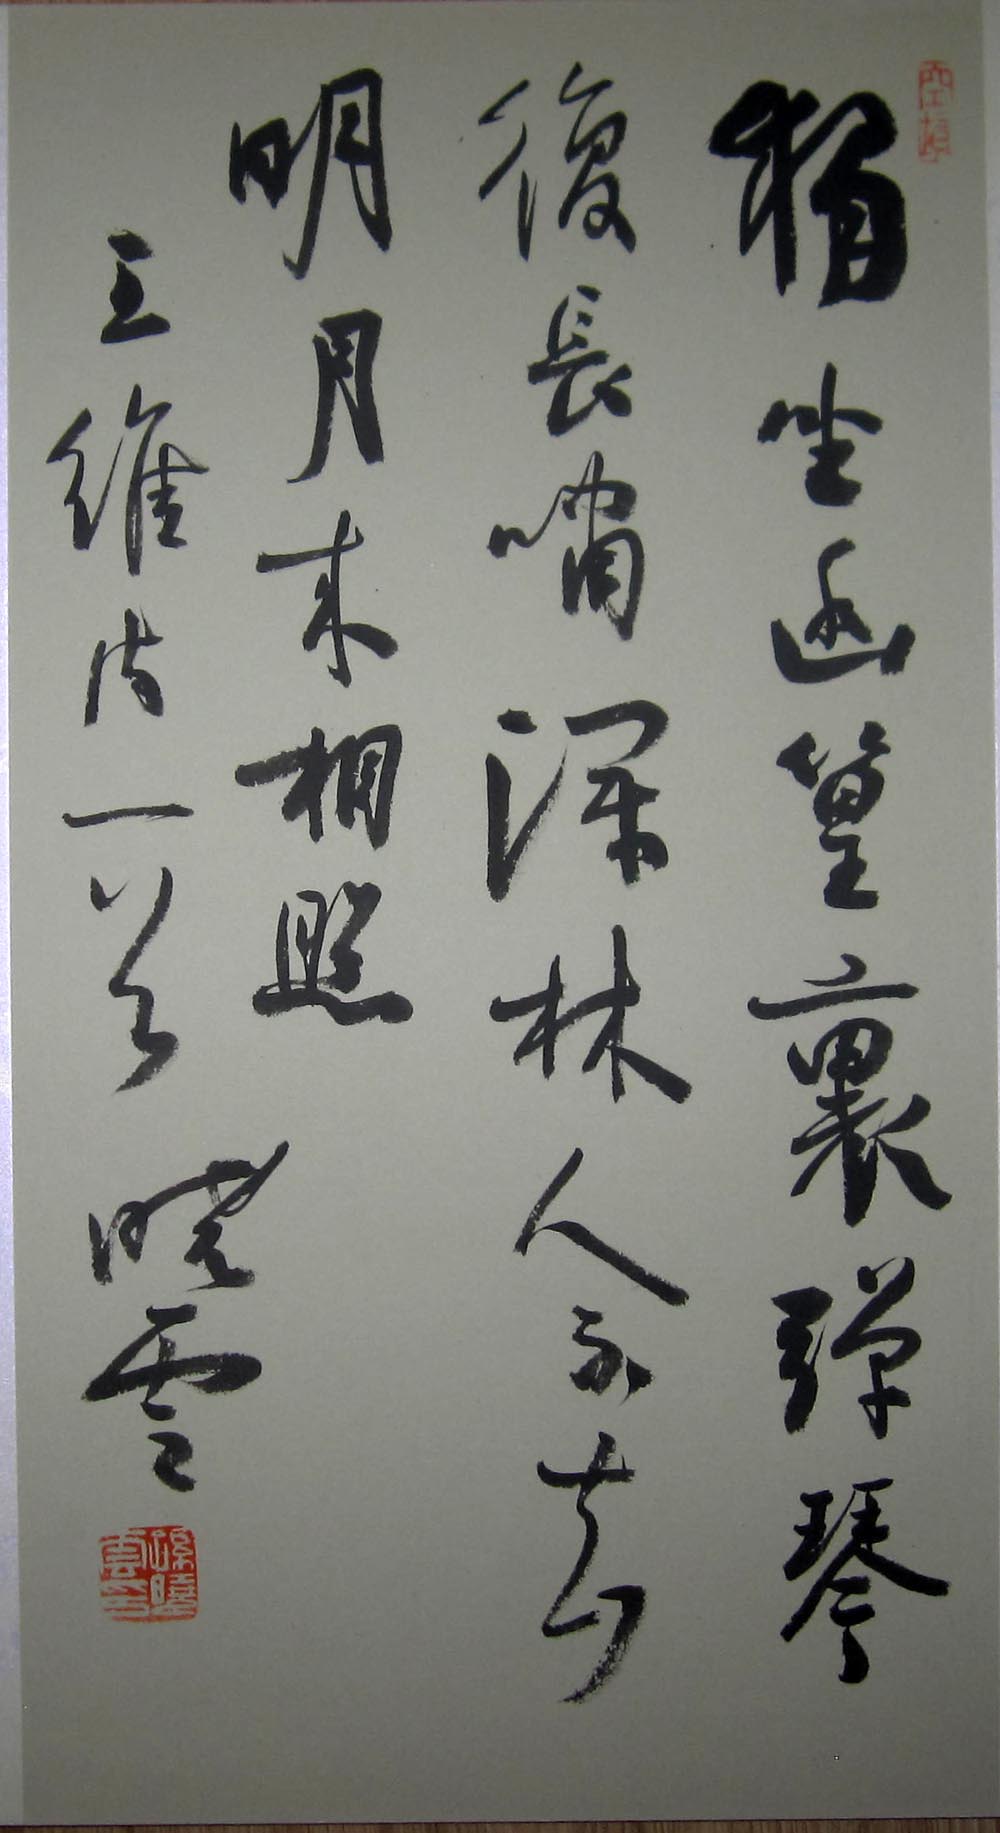 獨坐幽篁裏彈琴
復長嘯深林人不知
明月来相照
王維诗一首 曉雲
孫曉雲印